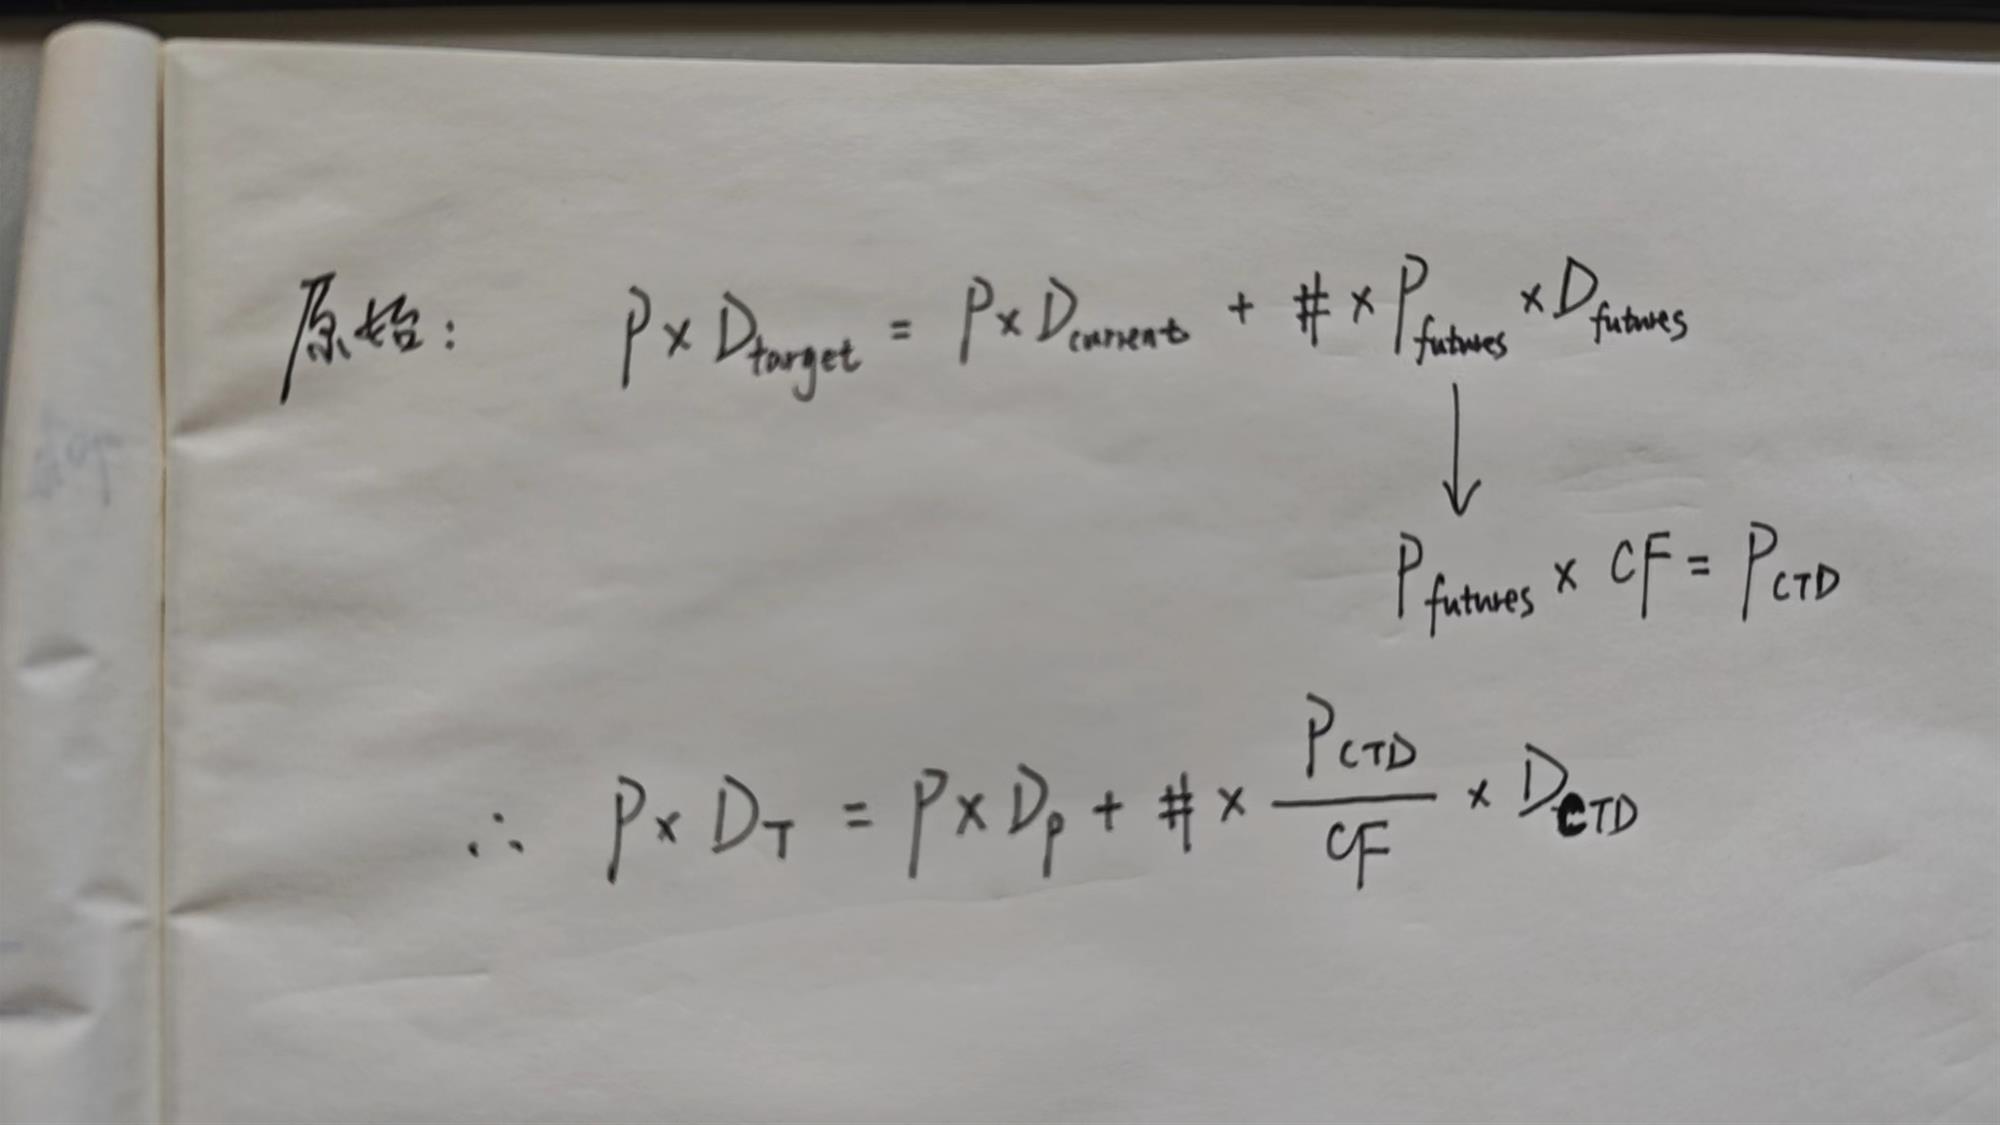 原始: P × D_target = P × D_current + # × P_futures × D_futures
↓
P_futures × CF = P_CTD
∴ P × D_T = P × D_P + # × P_CTD / CF × D_CTD